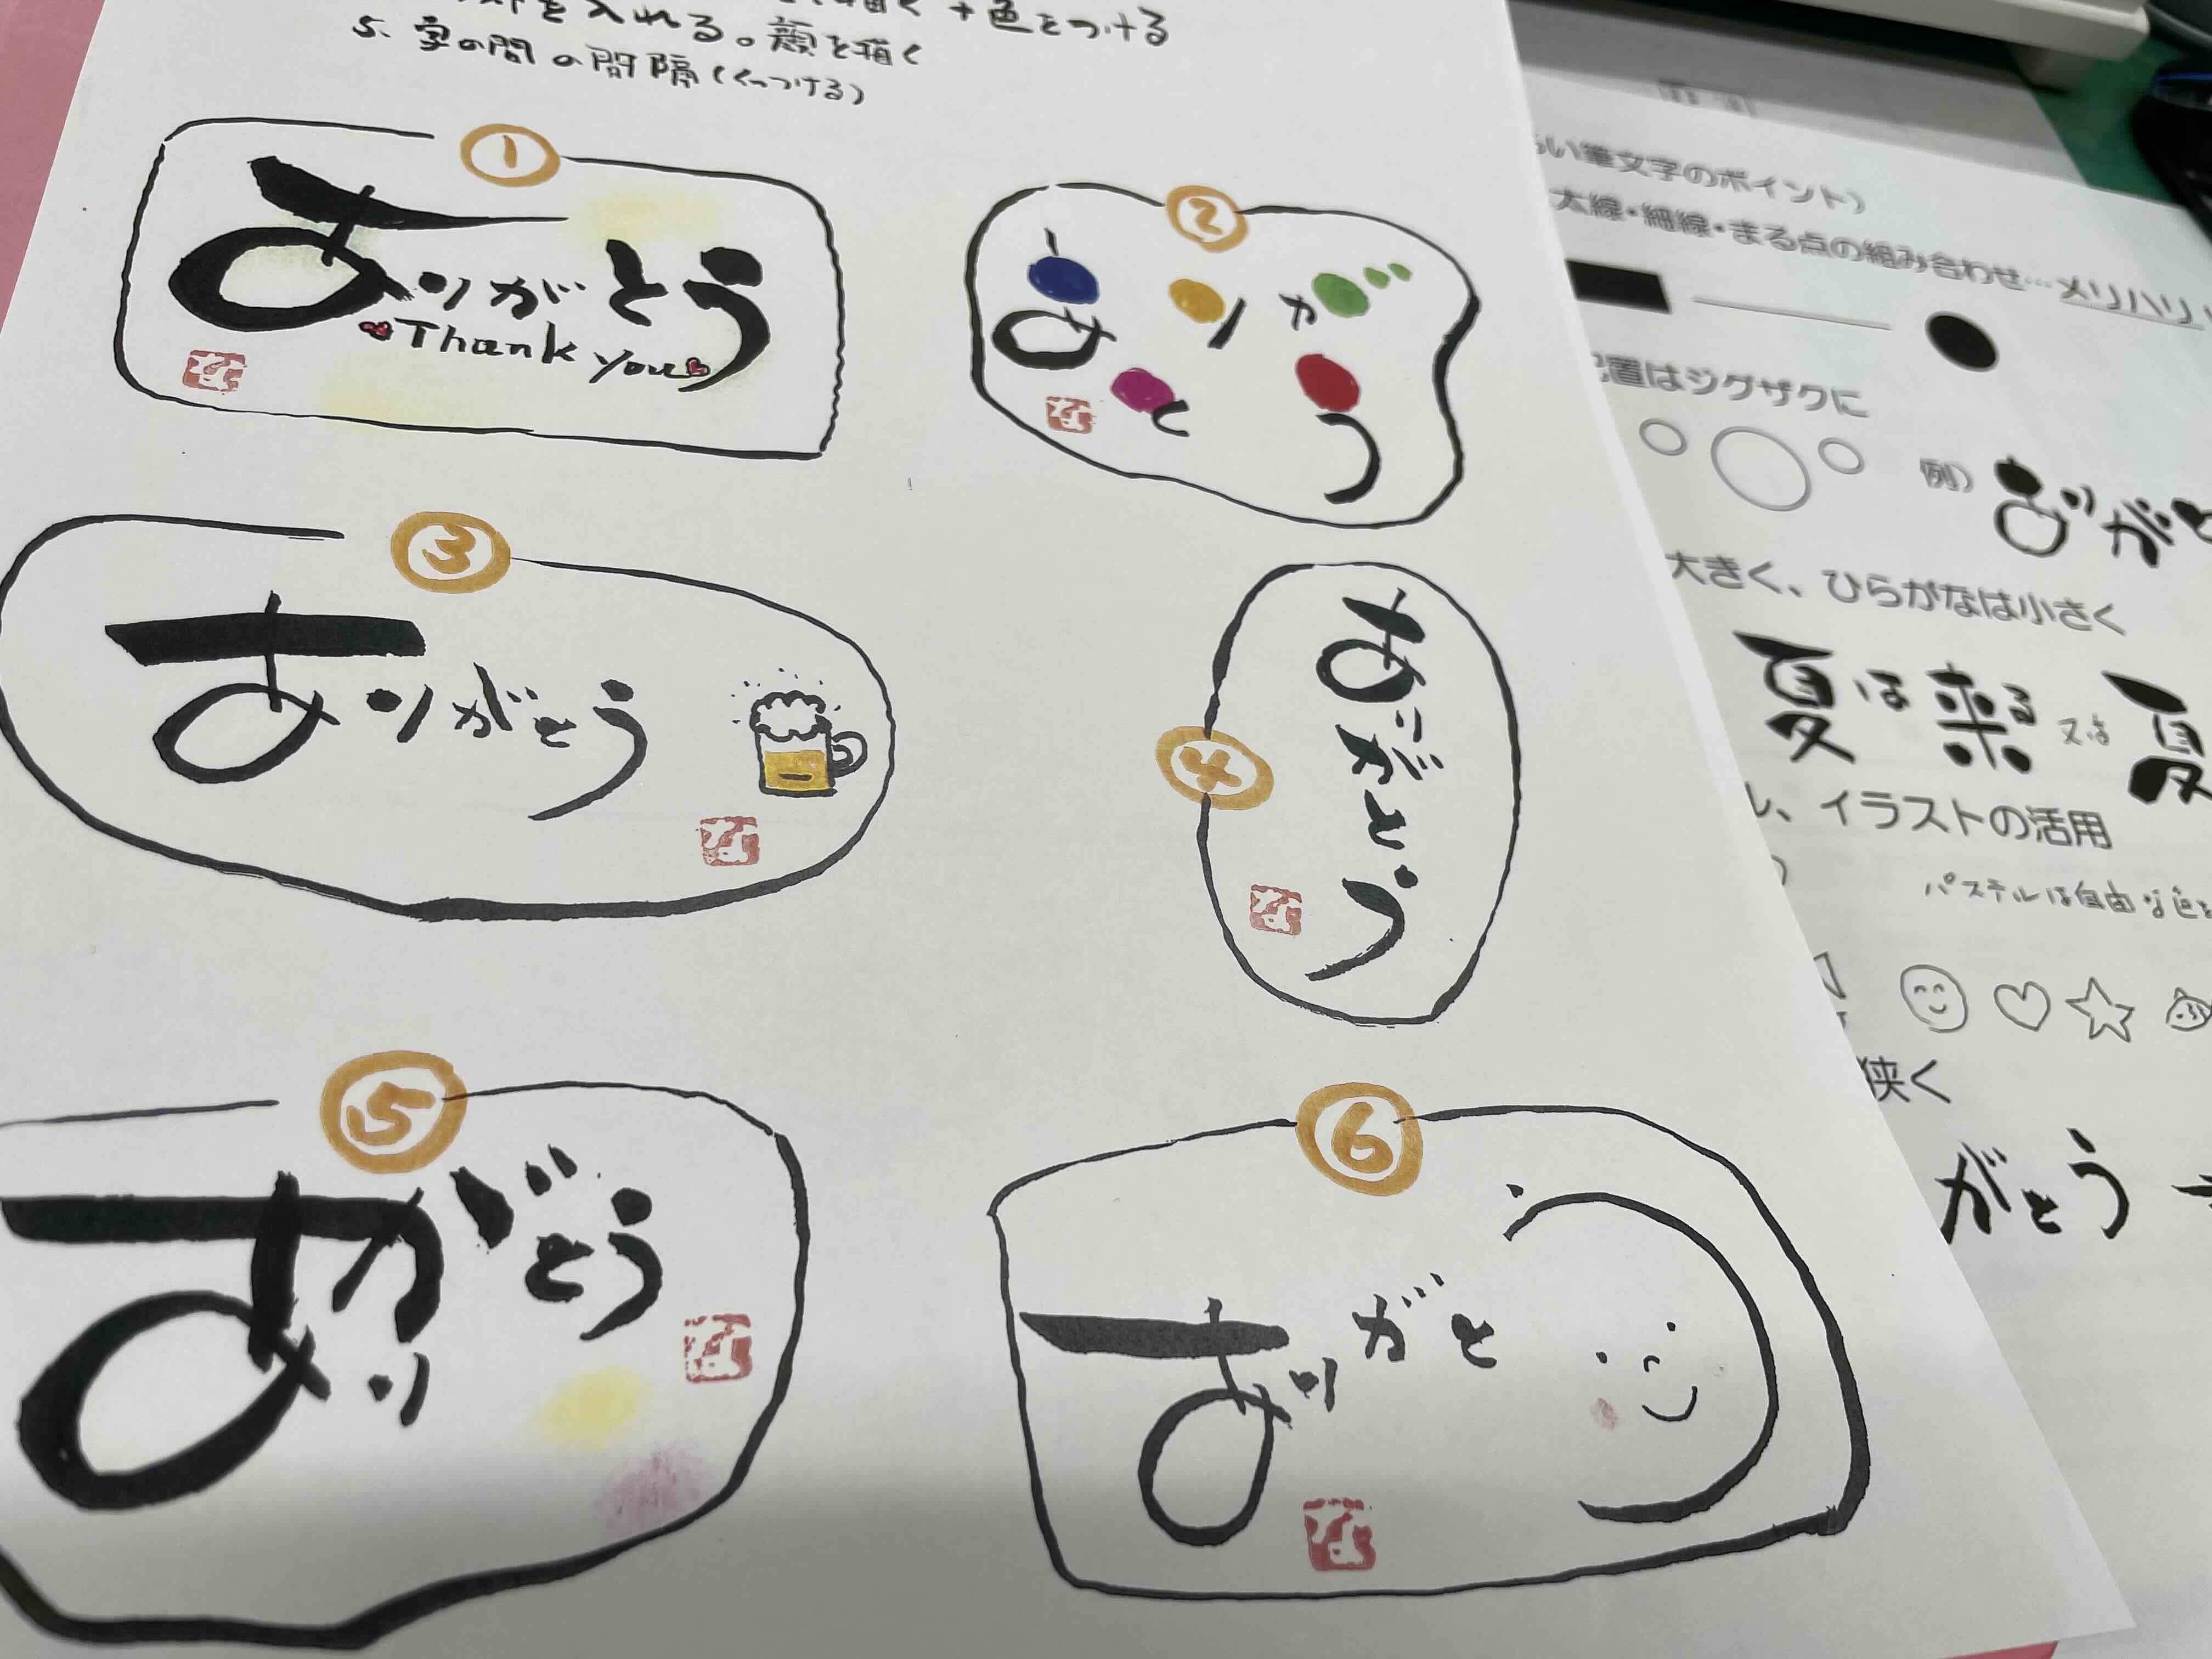 を入れる。顔を描く +色をつける
5. 字の間の間隔(くっつける)
①
ありがとう
Thank you
な
②
ありがとう
な
③
ありがとう
な
④
ありがとう
な
⑤
ありがとう
な
⑥
ありがとう
な
い筆文字のポイント)
太線・細線・まる点の組み合わせ…メリハリ
配置はジグザクに
例) ありがと
大きく、ひらがなは小さく
夏は来る 又は 夏
ル、イラストの活用
パステルは自由な色を
狭く
がとう